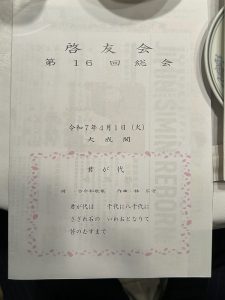 啓友会
第16回総会
令和7年4月1日(火)
大成閣
君が代
詞 古今和歌集 作曲 林 広守
君が代は 千代に八千代に
さざれ石の いわおとなりて
苔のむすまで